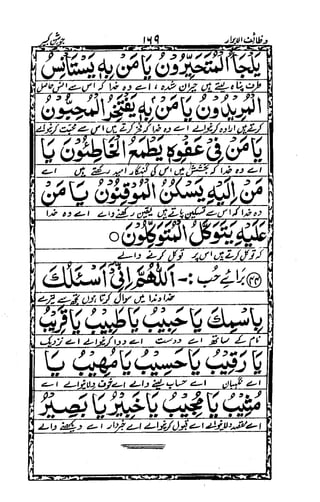 وظائف الابرار ۱۶۹ جوشن کبیر
يَلْجَأُ الْمُتَحَيِّرُونَ يَا مَنْ بِهِ يَسْتَأْنِسُ
طرف پناہ لیتے ہیں حیران شدہ اے وہ خدا کہ اس سے انس حاصل
الْمُرِيدُونَ يَا مَنْ بِهِ يَفْتَخِرُ الْمُحِبُّونَ
کرتے ہیں ارادہ کرنیوالے اے وہ خدا کہ فخر کرتے ہیں اس سے محبت کرنیوالے
يَا مَنْ فِي عَفْوِهِ يَطْمَعُ الْخَاطِئُونَ يَا
اے وہ خدا کہ بخشش میں اس کی گنہگار امید رکھتے ہیں اے
مَنْ اِلَيْهِ يَسْكُنُ الْمُوقِنُونَ يَا مَنْ
وہ خدا کہ اس سے تسکین پاتے ہیں یقین رکھنے والے اے وہ خدا
عَلَيْهِ يَتَوَكَّلُ الْمُتَوَكِّلُونَ ○
کہ توکل کرتے ہیں اس پر توکل کرنے والے
برائے حُب :- اَللّٰهُمَّ اِنِّي اَسْئَلُكَ
خداوندا میں سوال کرتا ہوں تجھ سے تیرے
بِاسْمِكَ يَا حَبِيبُ يَا طَبِيبُ يَا قَرِيبُ
نام کے ساتھ اے دوست اے دوا کرنیوالے اے نزدیک
يَا رَقِيبُ يَا حَسِيبُ يَا مُهِيبُ يَا
اے نگہبان اے حساب لینے والے اے خوف دلانیوالے اے
مُثِيبُ يَا مُجِيبُ يَا خَبِيرُ يَا بَصِيرُ
اے قبول کرنیوالے اے خبردار اے دیکھنے والے